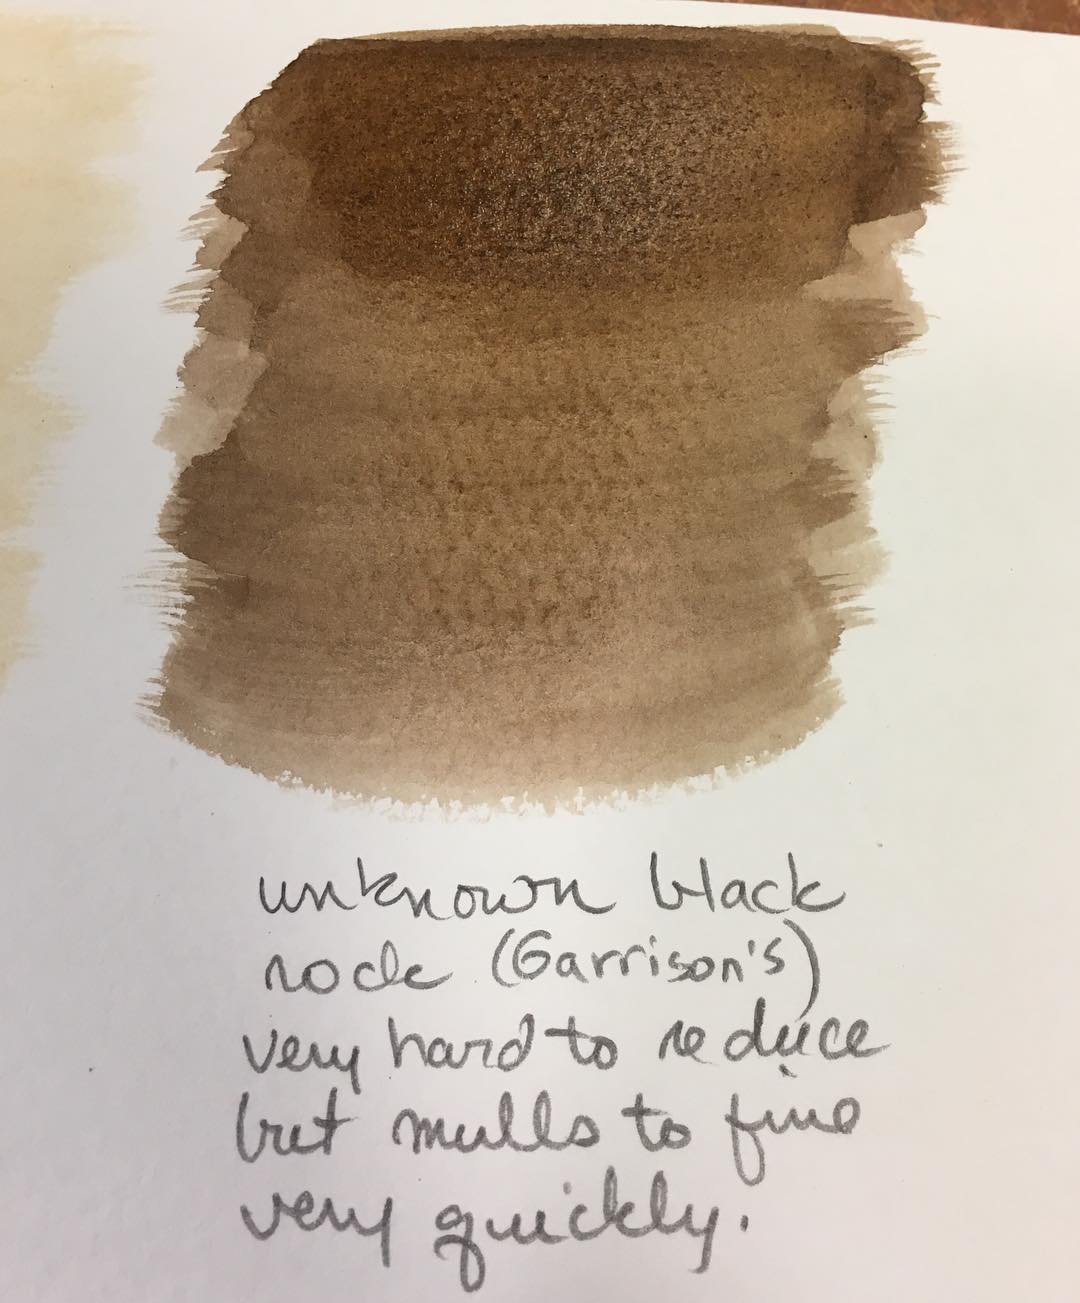 unknown black
rock (Garrison's)
very hard to reduce
but mulls to fine
very quickly.